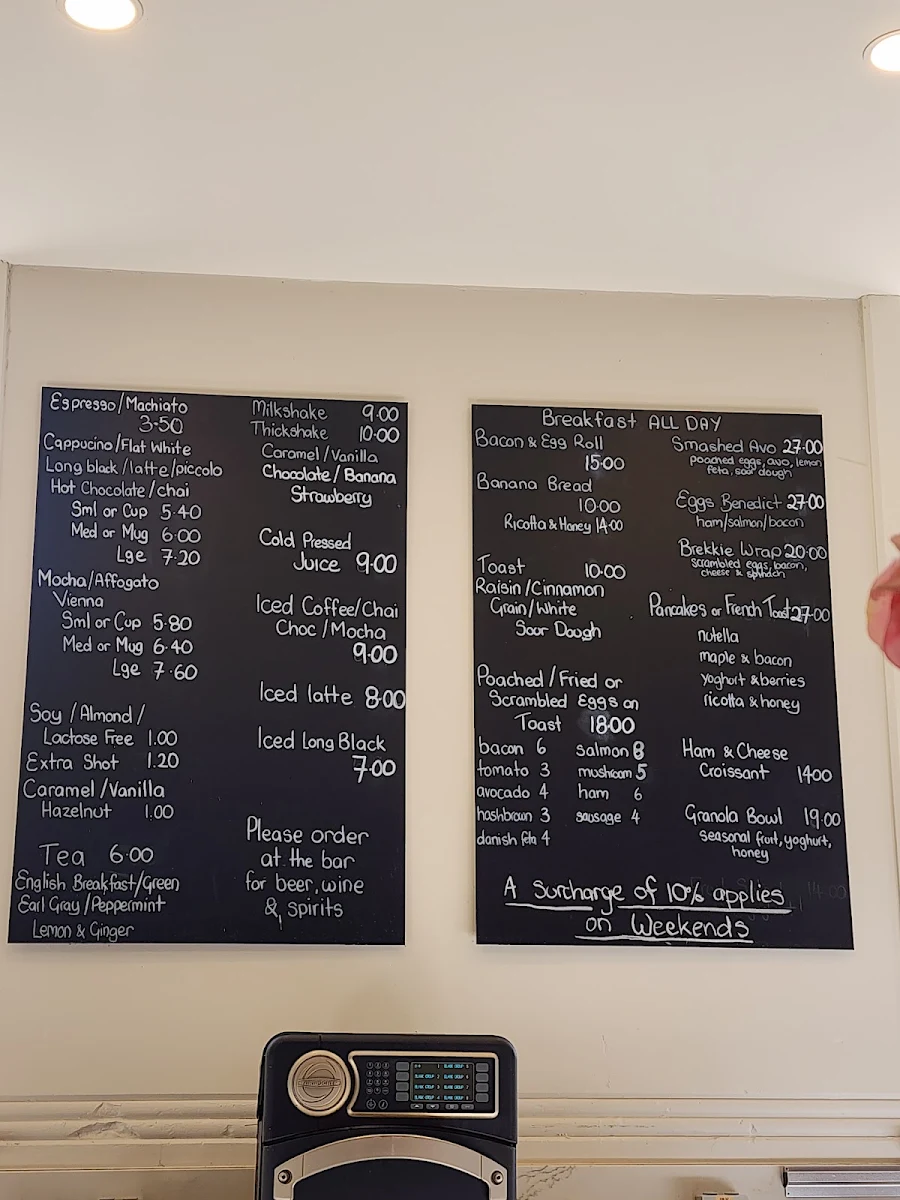 Espresso/Machiato
3.50
Cappucino/Flat White
Long black/latte/piccolo
Hot Chocolate/chai
Sml or Cup 5.40
Med or Mug 6.00
Lge 7.20
Mocha/Affogato
Vienna
Sml or Cup 5.80
Med or Mug 6.40
Lge 7.60
Soy/Almond/
Lactose Free 1.00
Extra Shot 1.20
Caramel/Vanilla
Hazelnut 1.00
Tea 6.00
English Breakfast/Green
Earl Gray/Peppermint
Lemon & Ginger
Milkshake 9.00
Thickshake 10.00
Caramel/Vanilla
Chocolate/Banana
Strawberry
Cold Pressed
Juice 9.00
Iced Coffee/Chai
Choc/Mocha
9.00
Iced latte 8.00
Iced Long Black
7.00
Please order
at the bar
for beer, wine
& spirits
Breakfast ALL DAY
Bacon & Egg Roll
15.00
Banana Bread
10.00
Ricotta & Honey 14.00
Toast 10.00
Raisin/Cinnamon
Grain/White
Sour Dough
Poached/Fried or
Scrambled Eggs on
Toast 18.00
bacon 6 salmon 8
tomato 3 mushroom 5
avocado 4 ham 6
hashbrown 3 sausage 4
danish feta 4
Smashed Avo 27.00
poached eggs, avo, lemon
feta, sour dough
Eggs Benedict 27.00
ham/salmon/bacon
Brekkie Wrap 20.00
scrambled eggs, bacon,
cheese & spinach
Pancakes or French Toast 27.00
nutella
maple & bacon
yoghurt & berries
ricotta & honey
Ham & Cheese
Croissant 1400
Granola Bowl 19.00
seasonal fruit, yoghurt,
honey
A surcharge of 10% applies
on Weekends